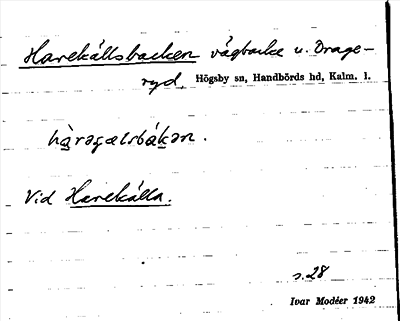 Harekällsbacken vägbacke v. Drage-
ryd, Högsby sn, Handbörds hd, Kalm. l.
Vid Harekälla.
s. 28
Ivar Modéer 1942